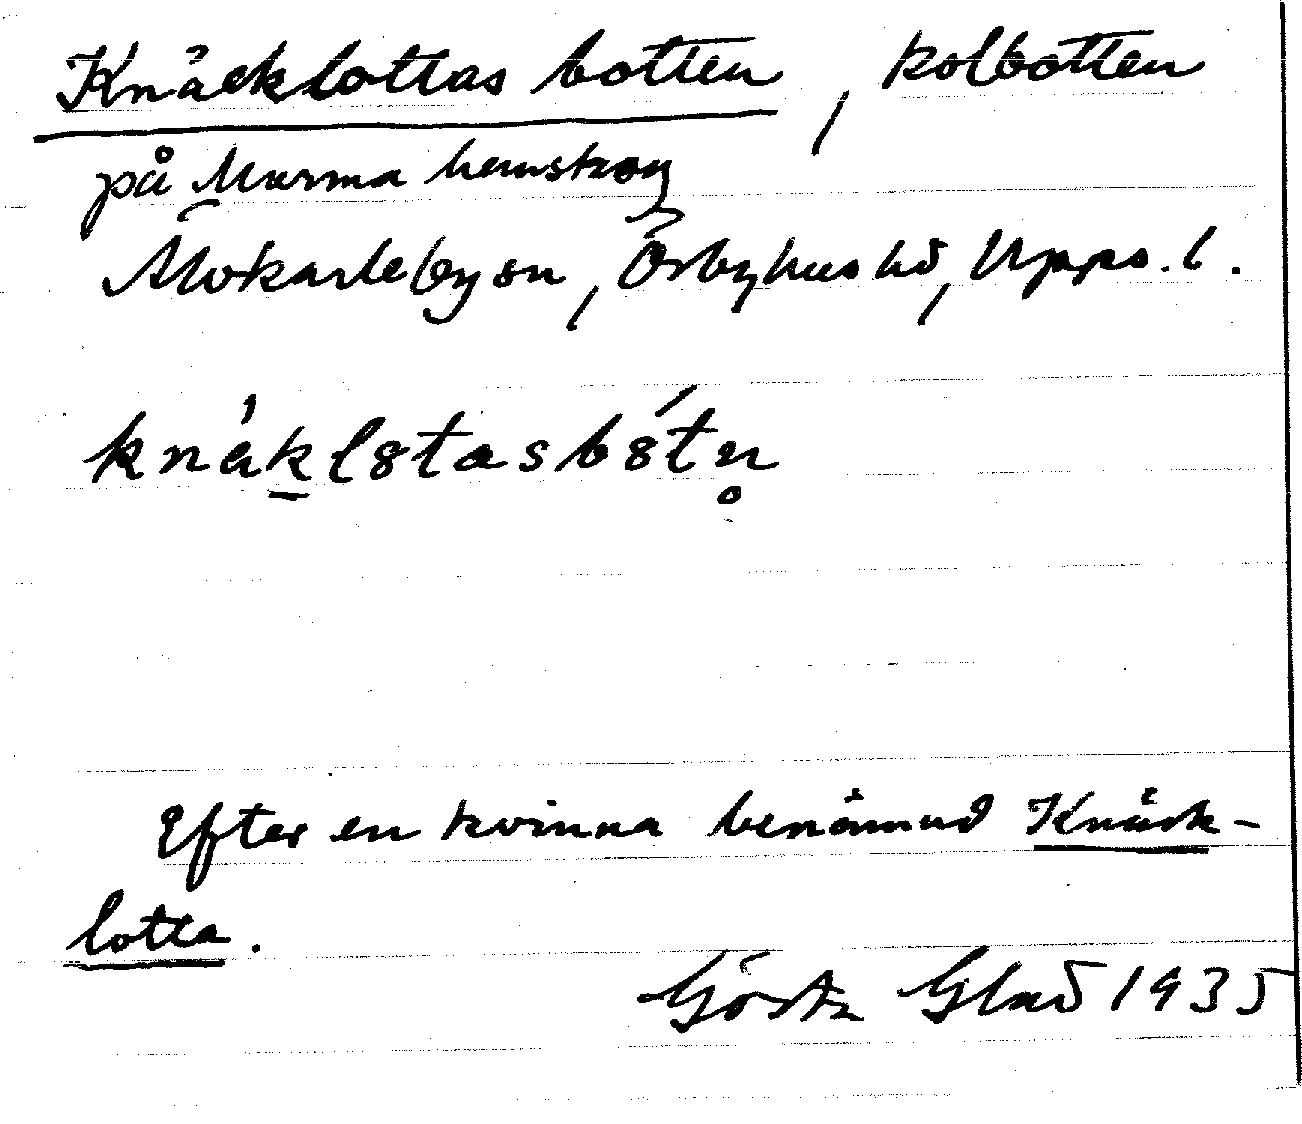 Knäcklottas botten, kolbotten
på Marma hemskog
Älvkarleby sn, Örbyhus hd, Upps. l.
knäklotasbótn̥
Efter en kvinna benämnd Knäck-
lotta.
Gösta Glad 1935